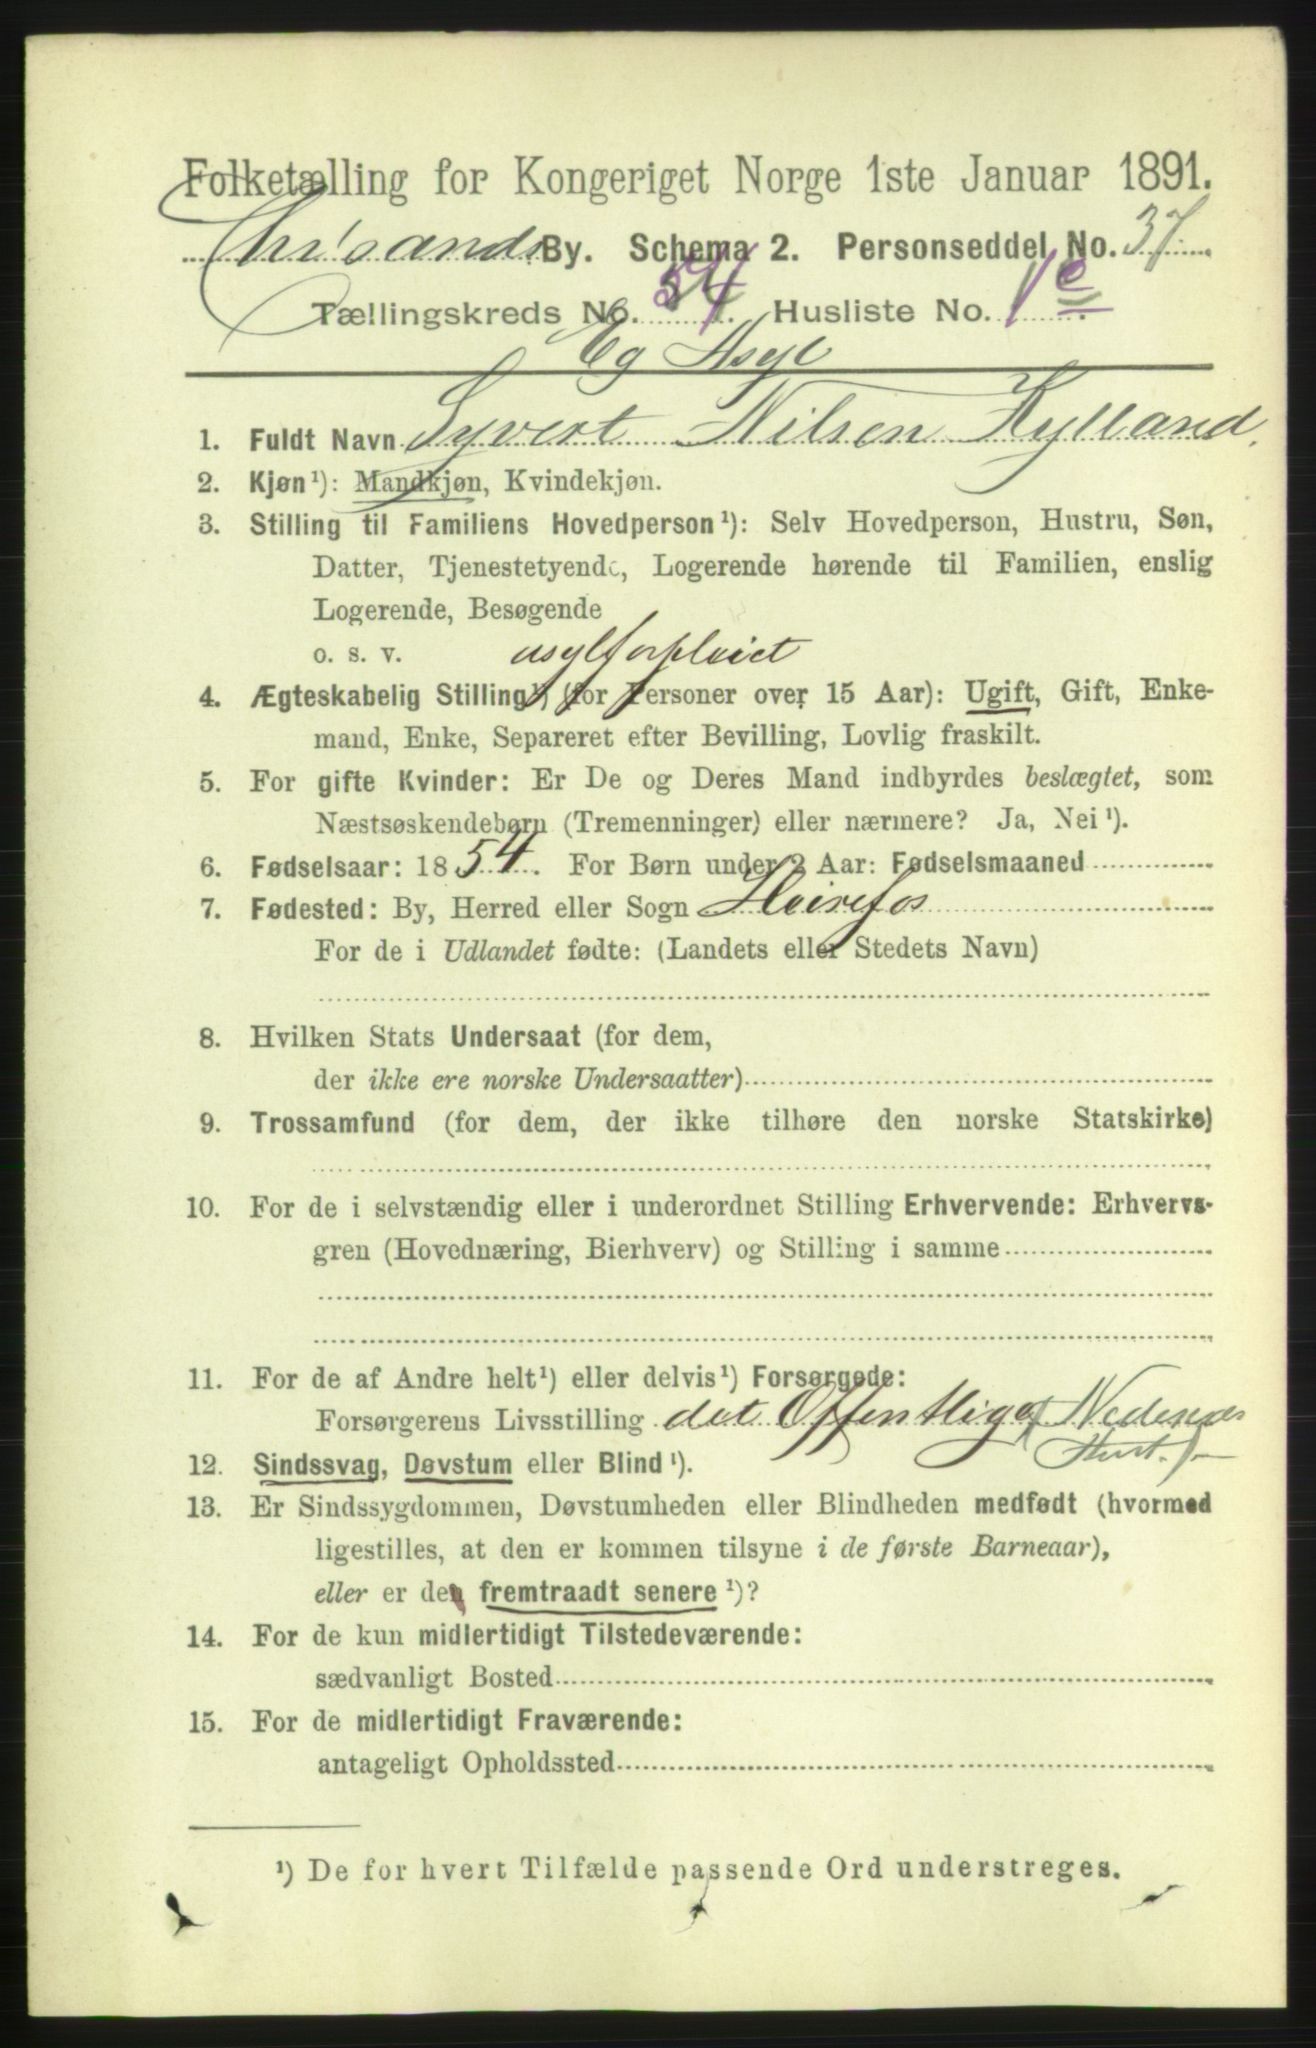 Folketælling for Kongeriget Norge 1ste Januar 1891.
Chr'sands By. Schema 2. Personseddel No. 37
Tællingskreds No. 54. Husliste No. 1 c
Eg Asyl
1. Fuldt Navn Syvert Nilsen Kylland.
2. Kjøn¹): Mandkjøn, Kvindekjøn.
3. Stilling til Familiens Hovedperson¹): Selv Hovedperson, Hustru, Søn,
Datter, Tjenestetyende, Logerende hørende til Familien, enslig
Logerende, Besøgende
o. s. v. asylforpleiet
4. Ægteskabelig Stilling¹) (for Personer over 15 Aar): Ugift, Gift, Enke-
mand, Enke, Separeret efter Bevilling, Lovlig fraskilt.
5. For gifte Kvinder: Er De og Deres Mand indbyrdes beslægtet, som
Næstsøskendebørn (Tremenninger) eller nærmere? Ja, Nei¹).
6. Fødselsaar: 1854. For Børn under 2 Aar: Fødselsmaaned
7. Fødested: By, Herred eller Sogn
For de i Udlandet fødte: (Landets eller Stedets Navn)
8. Hvilken Stats Undersaat (for dem,
der ikke ere norske Undersaatter)
9. Trossamfund (for dem, der ikke tilhøre den norske Statskirke)
10. For de i selvstændig eller i underordnet Stilling Erhvervende: Erhvervs-
gren (Hovednæring, Bierhverv) og Stilling i samme
11. For de af Andre helt¹) eller delvis¹) Forsørgede:
Forsørgerens Livsstilling det Offentlige (Nedenæs
12. Sindssvag, Døvstum eller Blind¹).
13. Er Sindssygdommen, Døvstumheden eller Blindheden medfødt (hvormed
ligestilles, at den er kommen tilsyne i de første Barneaar),
eller er den fremtraadt senere¹)?
14. For de kun midlertidigt Tilstedeværende:
sædvanligt Bosted
15. For de midlertidigt Fraværende:
antageligt Opholdssted
¹) De for hvert Tilfælde passende Ord understreges.